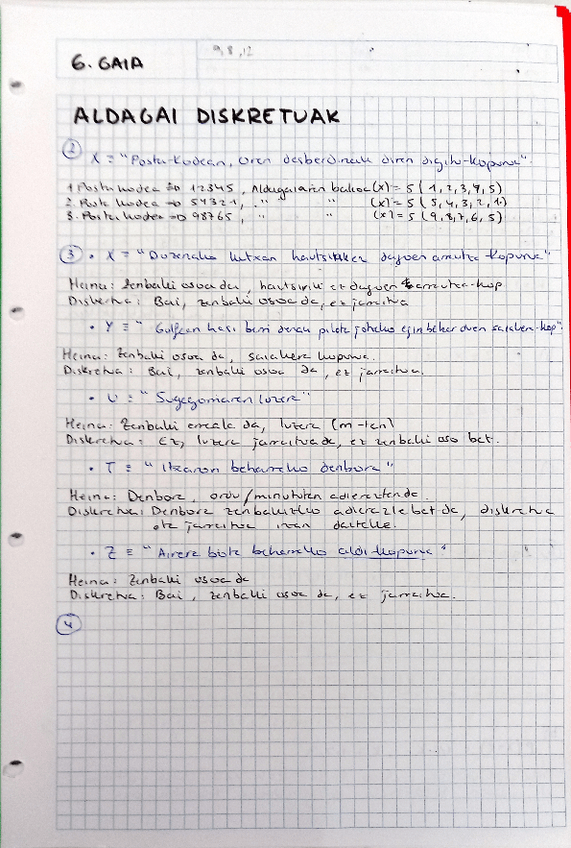 9, 8, 12
6. GAIA
ALDAGAI DISKRETUAK
2 X = "Posta-kodean, zeren desberdinak diren digitu-kopurua".
1. Posta kodea => 12345, Aldagaiaren balioa (x) = 5 (1, 2, 3, 4, 5)
2. Posta kodea => 54321, " " (x) = 5 (5, 4, 3, 2, 1)
3. Posta kodea => 98765, " " (x) = 5 (9, 8, 7, 6, 5)
3 • X = "Dozenako kutxan hautsitako dauden arrautza-kopurua"
Heina: Zenbaki osoa da, hautsirik ez dauden arrautza-kop
Diskretua: Bai, zenbaki osoa da, ez jarraitua
• Y ≡ "Golfean hasi berri denak pilota jotzeko egin behar duen saiakera-kop".
Heina: Zenbaki osoa da, saiakera kopurua.
Diskretua: Bai, zenbaki osoa da, ez jarraitua.
• U = "Sugegorriaren luzera"
Heina: Zenbaki erreala da, luzera (m-km)
Diskretua: Ez, luzera jarraitua da, ez zenbaki oso bat.
• T = "Itxaron beharreko denbora"
Heina: Denbora, ordu/minututan adierazten da.
Diskretua: Denbora zenbakizko adierazle bat da, diskretua
eta jarraitua izan daiteke.
• Z ≡ "Airera bota beharreko aldi-kopurua"
Heina: Zenbaki osoa da
Diskretua: Bai, zenbaki osoa da, ez jarraitua.
4